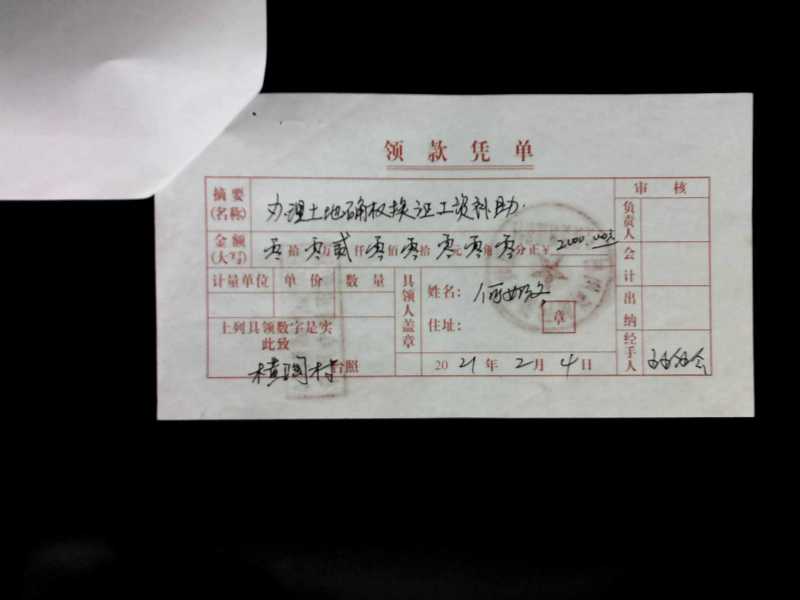 领款凭单
摘要(名称) 办理土地确权换证工资补助 审核
金额(大写) 零拾零万贰仟零佰零拾零元零角零分正¥2000.00元 负责人
计量单位 单价 数量 具领人盖章 姓名: 何 会计
住址: 章 出纳
上列具领数字是实
此致
村台照 2021年2月4日 经手人